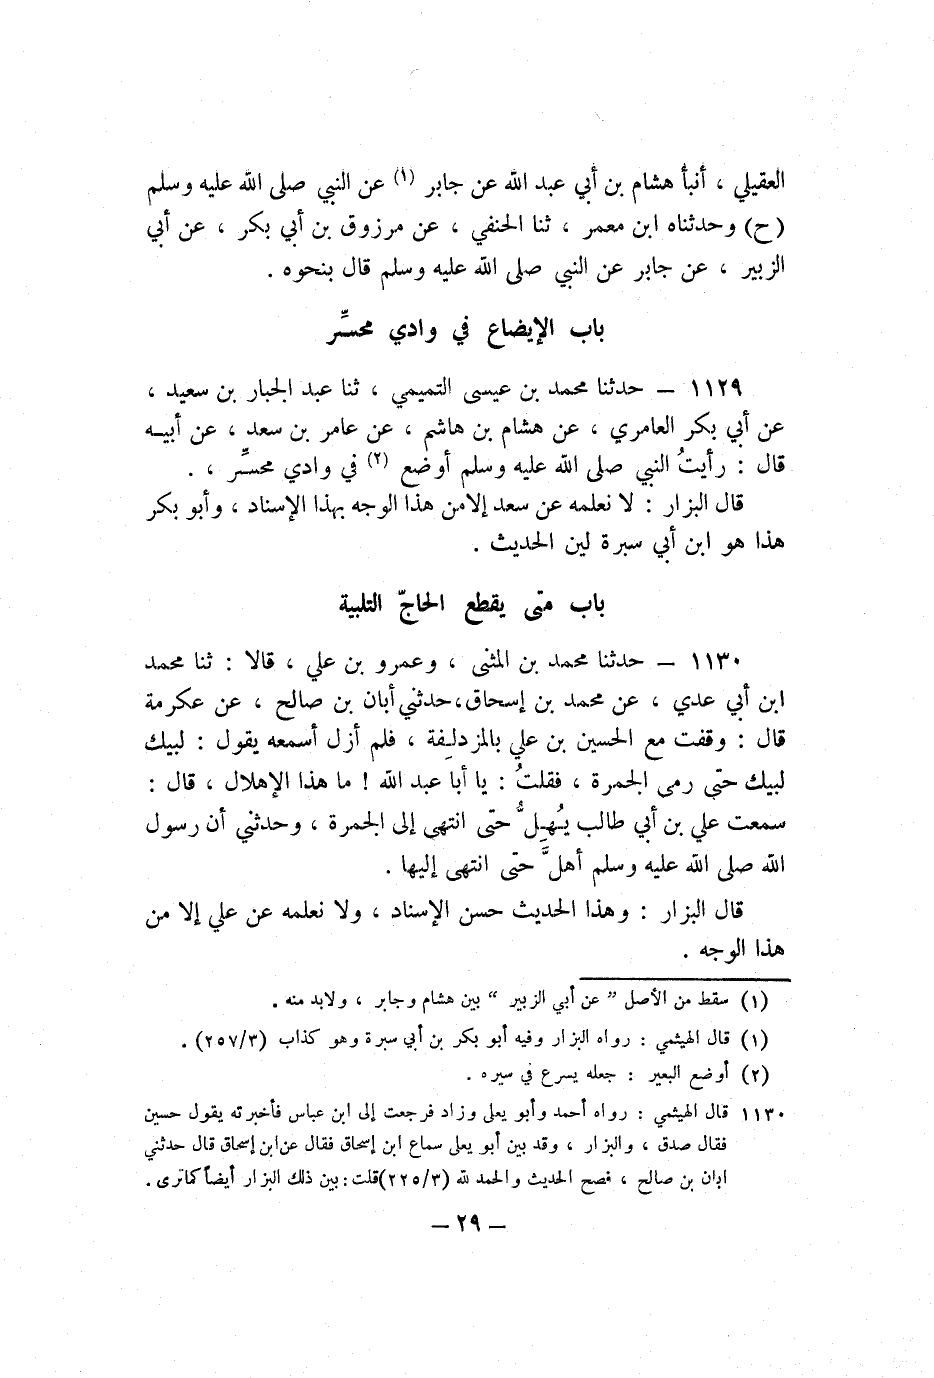 العقيلي ، أنبأ هشام بن أبي عبد الله عن جابر (١) عن النبي صلى الله عليه وسلم
(ح) وحدثناه ابن معمر ، ثنا الحنفي ، عن مرزوق بن أبي بكر ، عن أبي
الزبير ، عن جابر عن النبي صلى الله عليه وسلم قال بنحوه .
باب الإيضاع في وادي محسِّر
١١٢٩ – حدثنا محمد بن عيسى التميمي ، ثنا عبد الجبار بن سعيد ،
عن أبي بكر العامري ، عن هشام بن هاشم ، عن عامر بن سعد ، عن أبيـه
قال : رأيتُ النبي صلى الله عليه وسلم أوضع (٢) في وادي محسِّر ، .
قال البزار : لا نعلمه عن سعد إلا من هذا الوجه بهذا الإسناد ، وأبو بكر
هذا هو ابن أبي سبرة لين الحديث .
باب متى يقطع الحاجّ التلبية
١١٣٠ – حدثنا محمد بن المثنى ، وعمرو بن علي ، قالا : ثنا محمد
ابن أبي عدي ، عن محمد بن إسحاق ، حدثني أبان بن صالح ، عن عكرمة
قال : وقفت مع الحسين بن علي بالمزدلِفة ، فلم أزل أسمعه يقول : لبيك
لبيك حتى رمى الجمرة ، فقلتُ : يا أبا عبد الله ! ما هذا الإهلال ، قال :
سمعت علي بن أبي طالب يُهِلُّ حتى انتهى إلى الجمرة ، وحدثني أن رسول
الله صلى الله عليه وسلم أهلَّ حتى انتهى إليها .
قال البزار : وهذا الحديث حسن الإسناد ، ولا نعلمه عن علي إلا من
هذا الوجه .
(١) سقط من الأصل ” عن أبي الزبير “ بين هشام وجابر ، ولابد منه .
(١) قال الهيثمي : رواه البزار وفيه أبو بكر بن أبي سبرة وهو كذاب (٢٥٧/٣) .
(٢) أوضع البعير : جعله يسرع في سيره .
١١٣٠ قال الهيثمي : رواه أحمد وأبو يعلى وزاد فرجعت إلى ابن عباس فأخبرته يقول حسين
فقال صدق ، والبزار ، وقد بين أبو يعلى سماع ابن إسحاق فقال عن ابن إسحاق قال حدثني
ابان بن صالح ، فصح الحديث والحمد لله (٢٢٥/٣) قلت : بين ذلك البزار أيضاً كما ترى .
– ٢٩ –